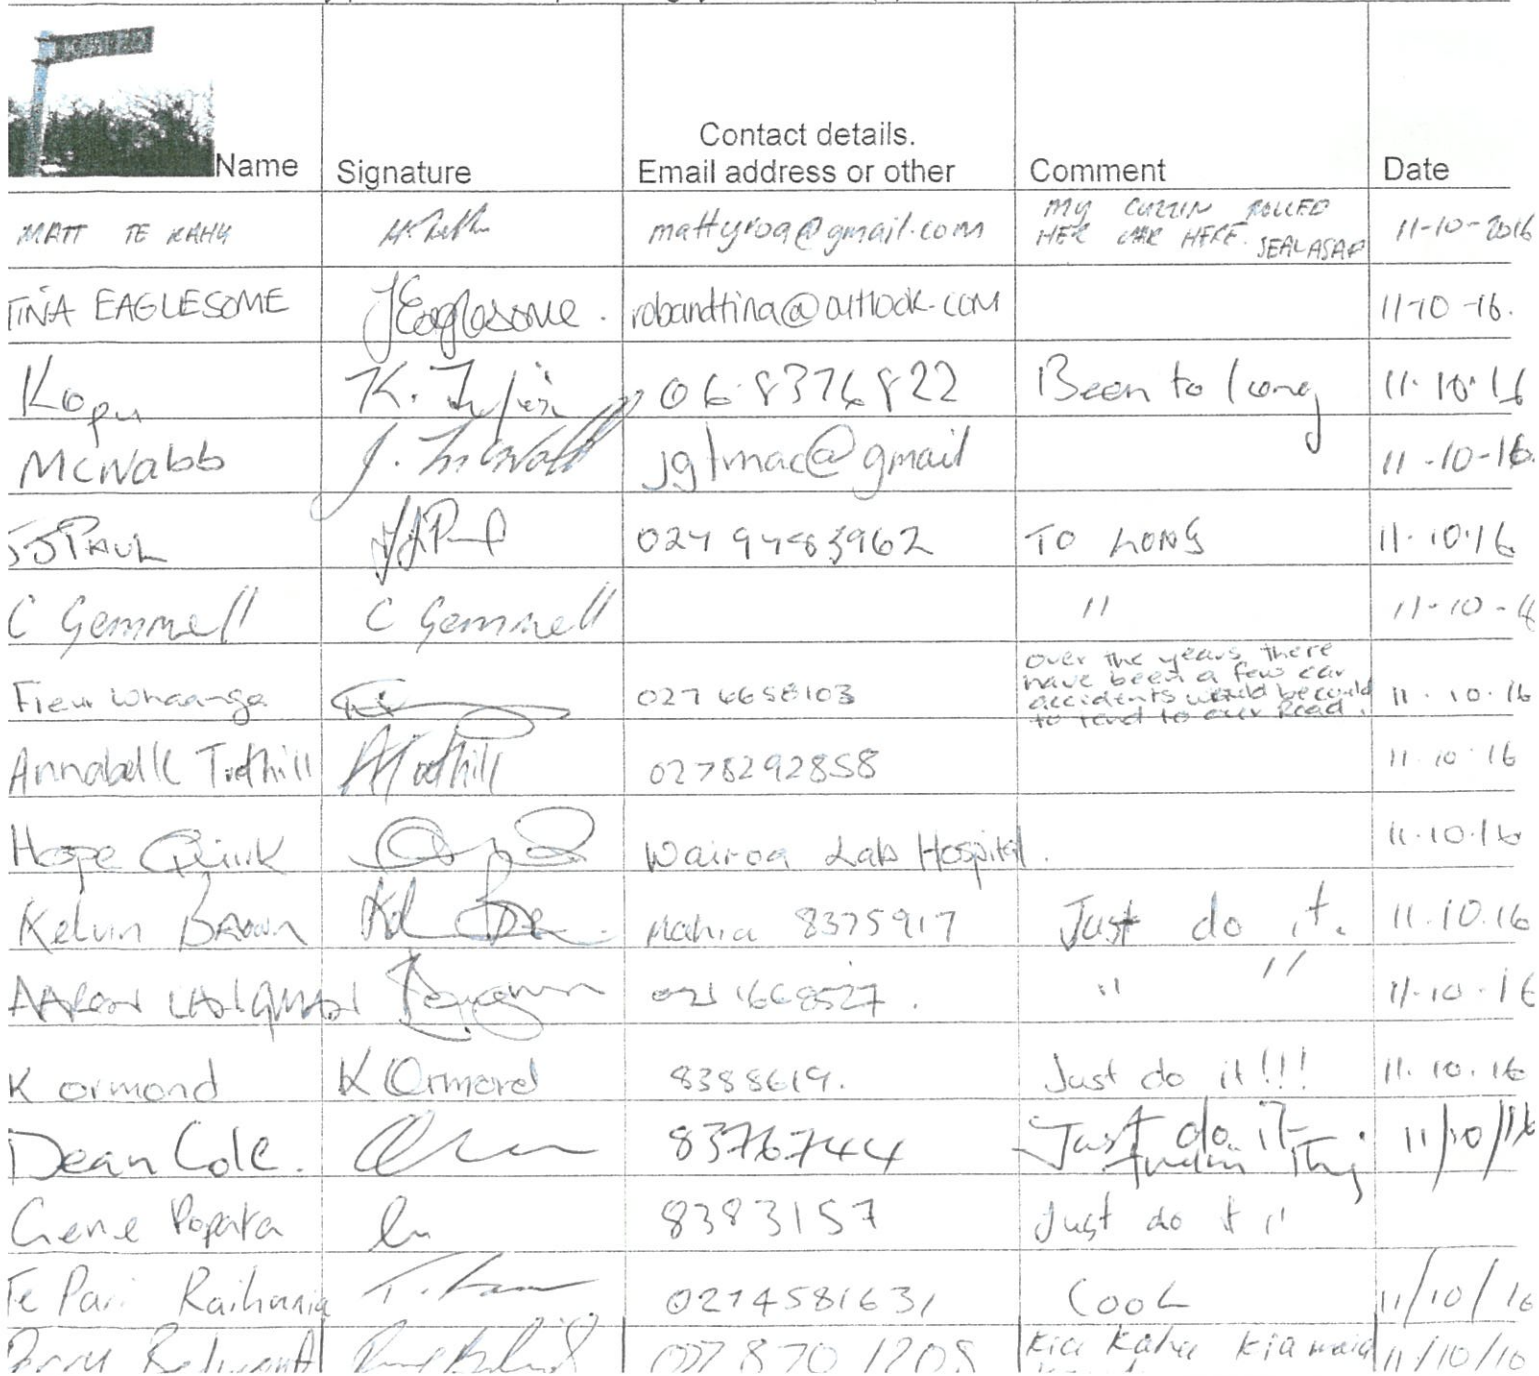 Name Signature Contact details.
Email address or other Comment Date
MATT TE KAHU mattyroa@gmail.com MY CUZZIN ROLLED
HER CAR HERE. SEAL ASAP 11-10-2016
TINA EAGLESOME JEaglesome. robandtina@outlook.com 11-10-16.
Kopu K. 06 8376822 Been to long 11.10.16
McNabb J. McNabb @gmail 11-10-16.
JJ PAUL JJ Paul TO LONG 11.10.16
C Gemmell C Gemmell " 11-10-16
Whaanga 027 6658103 over the years there
have been a few car
accidents would be
to tend to our Road. 11.10.16
Annabelle Toothill AToothill 0278292858 11.10.16
Hope Wairoa Lab Hospital. 11.10.16
Kelvin Brown Mahia 8375917 Just do it. 11.10.16
" " 11-10-16
K ormond K Ormond 8388619. Just do it!!! 11.10.16
Dean Cole. 8376744 Just do it 11/10/16
Gene Popata 8383157 Just do it
Te Pari Raihania 0274581631 Cool 11/10/16
Kia Kaha Kia maia 11/10/16